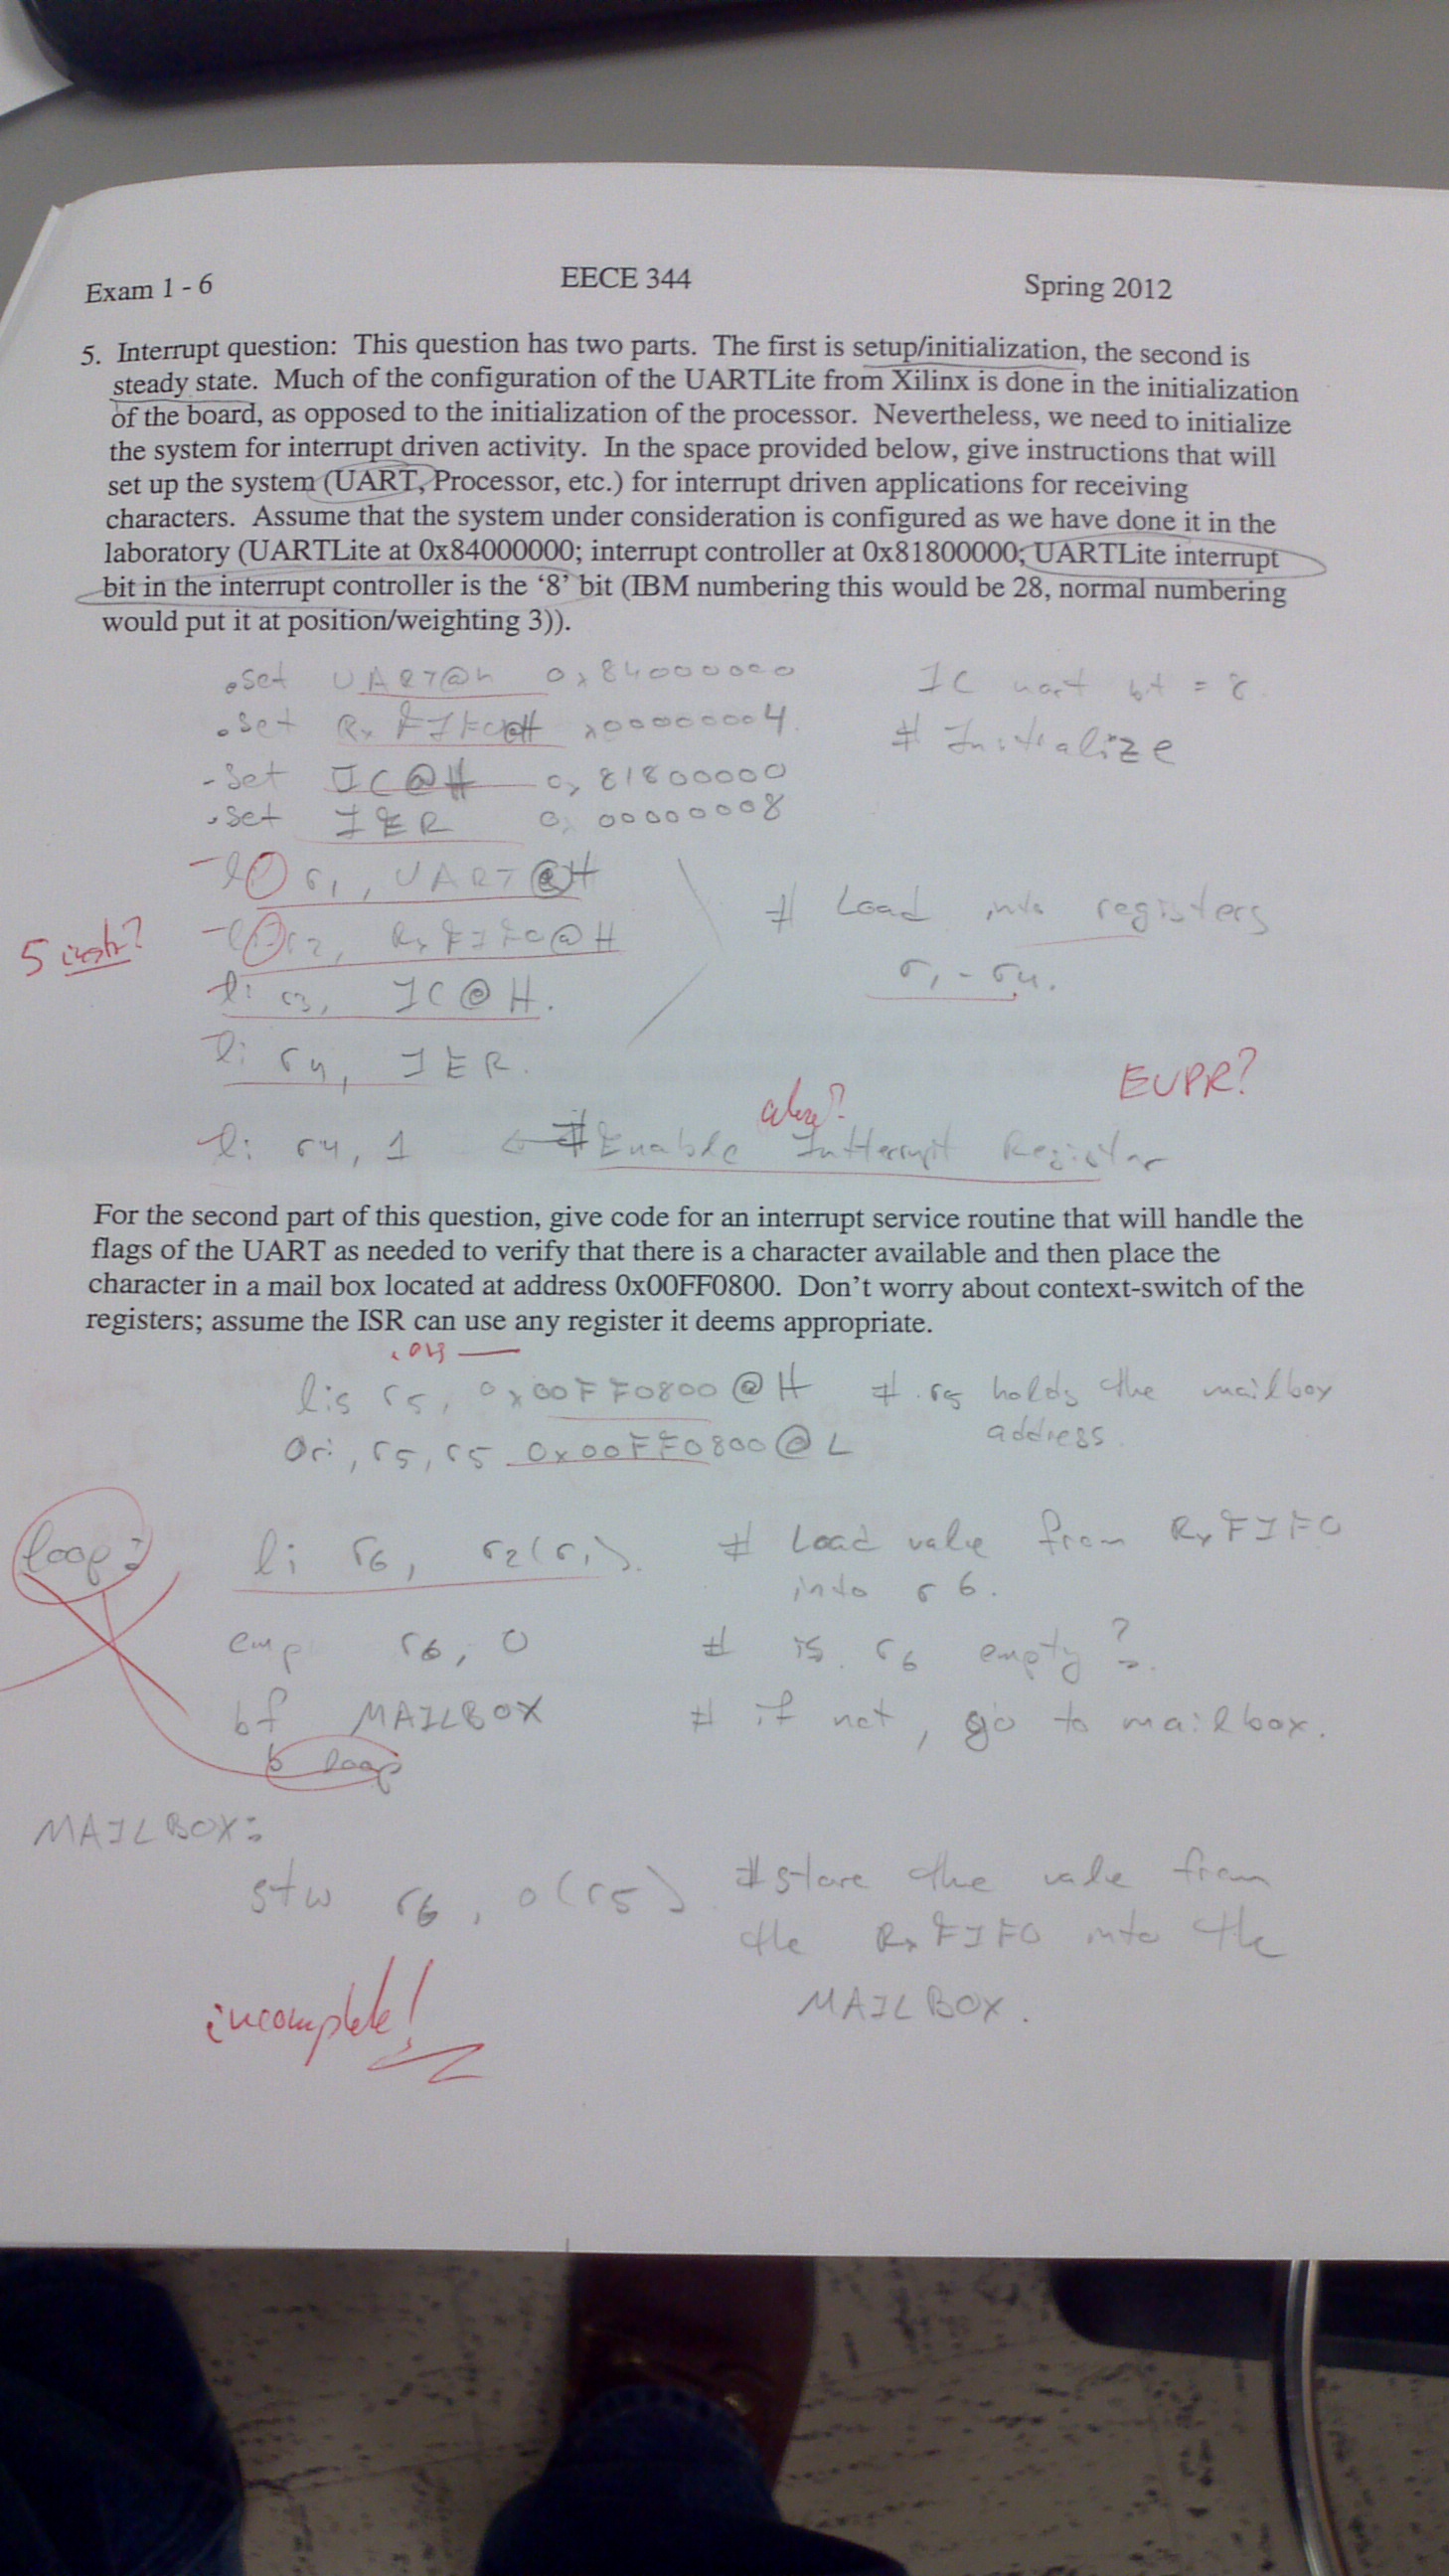 Exam 1 - 6 EECE 344 Spring 2012
5. Interrupt question: This question has two parts. The first is setup/initialization, the second is
steady state. Much of the configuration of the UARTLite from Xilinx is done in the initialization
of the board, as opposed to the initialization of the processor. Nevertheless, we need to initialize
the system for interrupt driven activity. In the space provided below, give instructions that will
set up the system (UART, Processor, etc.) for interrupt driven applications for receiving
characters. Assume that the system under consideration is configured as we have done it in the
laboratory (UARTLite at 0x84000000; interrupt controller at 0x81800000; UARTLite interrupt
bit in the interrupt controller is the ‘8’ bit (IBM numbering this would be 28, normal numbering
would put it at position/weighting 3)).
.set UART@h 0x84000000 IC uart bt = 8.
.set Rx FIFO@H x00000004. # Initialize
.set IC@H 0x81800000
.set IER 0x00000008
li r1, UART@H
li r2, RxFIFO@H # Load into registers
5 instr? r1 - r4.
li r3, IC@H.
li r4, IER.
EVPR?
where?
li r4, 1 ← # Enable Intterupt Register
For the second part of this question, give code for an interrupt service routine that will handle the
flags of the UART as needed to verify that there is a character available and then place the
character in a mail box located at address 0x00FF0800. Don’t worry about context-switch of the
registers; assume the ISR can use any register it deems appropriate.
.org —
lis r5, 0x00FF0800@H # r5 holds the mailbox
ori, r5, r5 0x00FF0800@L address.
loop: li r6, r2(r1). # Load value from RxFIFO
into r6.
cmp r6, 0 # is r6 empty?
bf MAILBOX # if not, go to mailbox.
b loop
MAILBOX:
stw r6, 0(r5) # store the value from
the RxFIFO into the
MAILBOX.
incomplete!